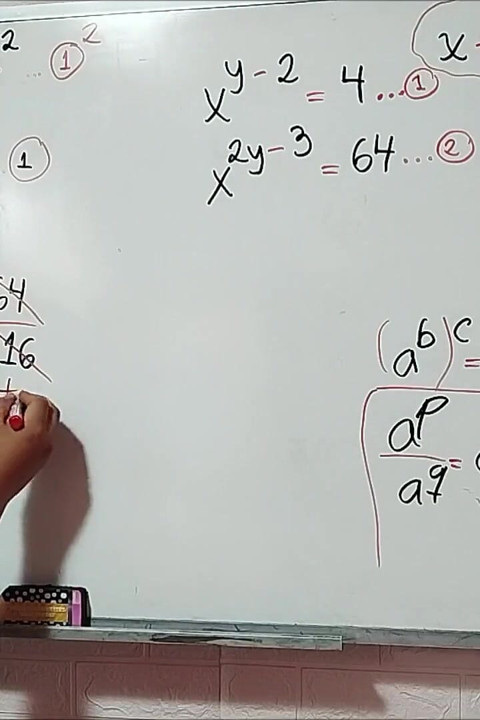 2
... ① ²
x^{y-2} = 4 ... ①
x^{2y-3} = 64 ... ②
x
①
64
16
(a^b)^c =
a^p / a^q =